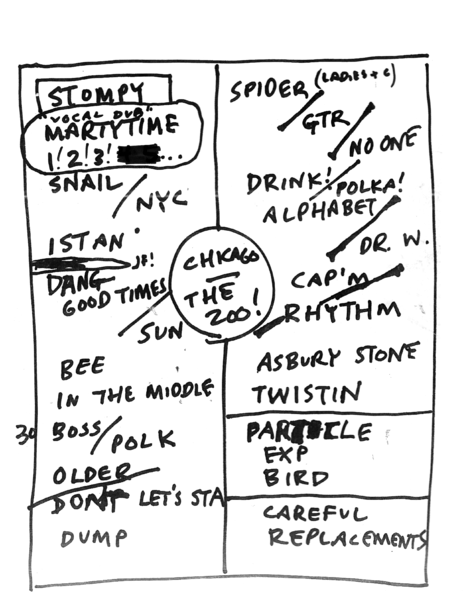 STOMPY
"VOCAL DUB"
MARTYTIME
1! 2! 3! ...
SNAIL
NYC
ISTAN
JF!
DANG
GOOD TIMES
SUN
BEE
IN THE MIDDLE
30 BOSS
POLK
OLDER
DON'T LET'S STA
DUMP
CHICAGO
THE
ZOO!
SPIDER (LADIES + C)
GTR
NO ONE
DRINK!
POLKA!
ALPHABET
DR. W.
CAP'M
RHYTHM
ASBURY STONE
TWISTIN
PARTICLE
EXP
BIRD
CAREFUL
REPLACEMENTS